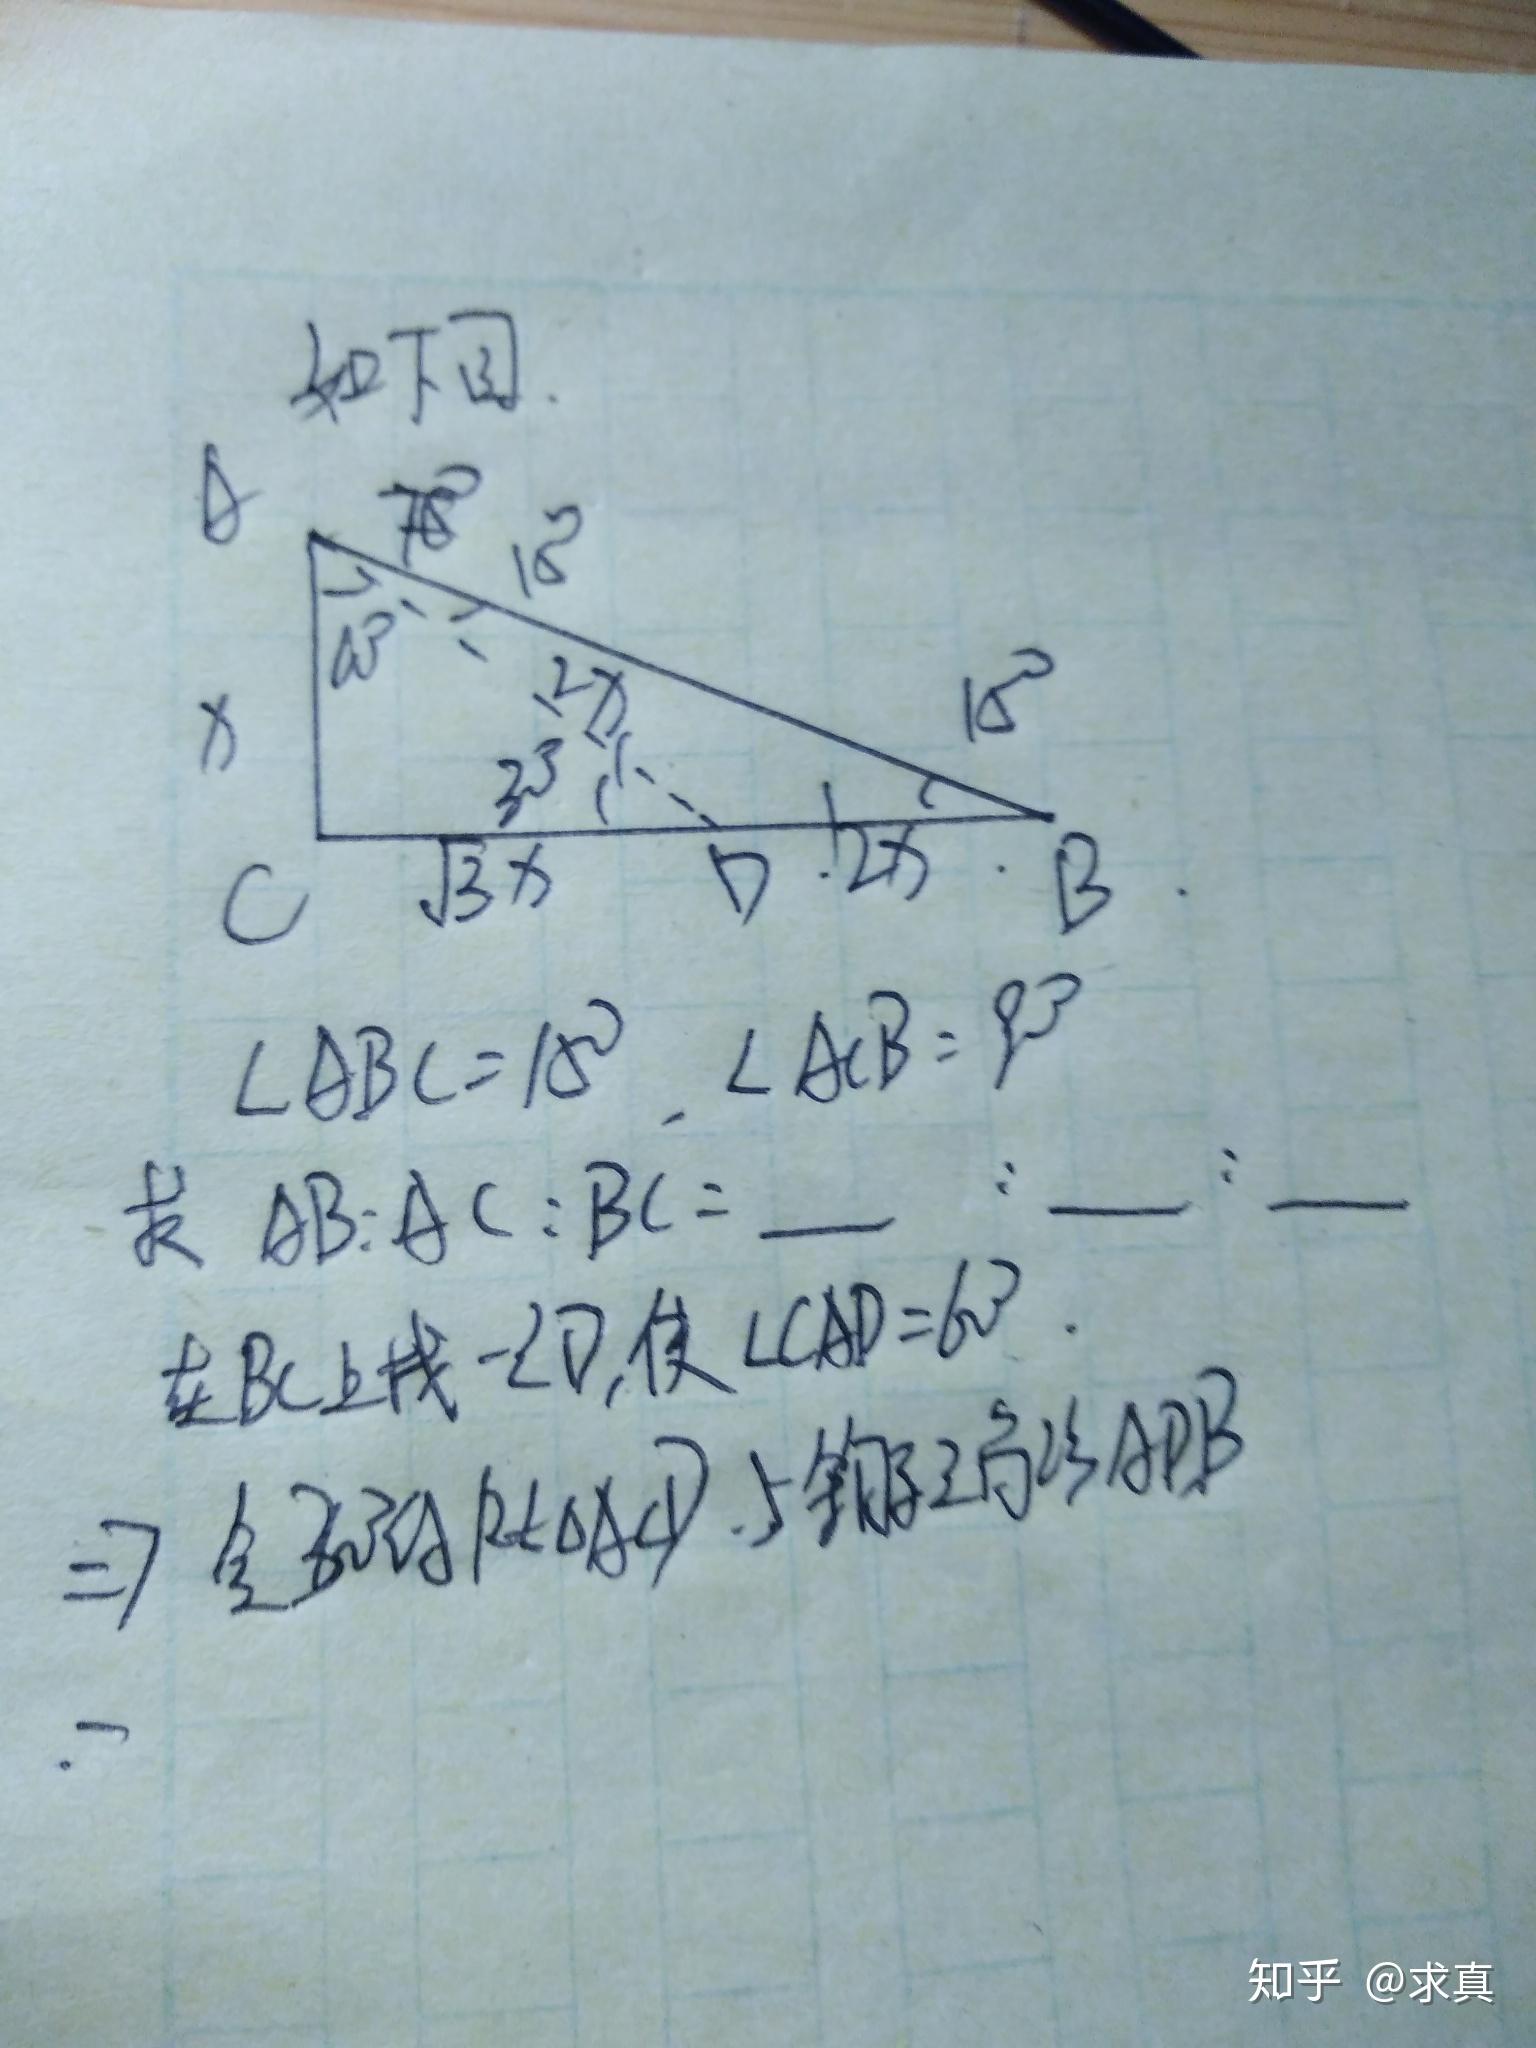 如下图.
A 75° 15°
60°
x 2x 15°
30°
√3x D 2x
C B
∠ABC=15°, ∠ACB=90°
求 AB:AC:BC=___:___:___
在BC上找一点D,使∠CAD=60°.
⇒ 含30°角Rt△ACD.与等腰三角形ADB
知乎 @求真